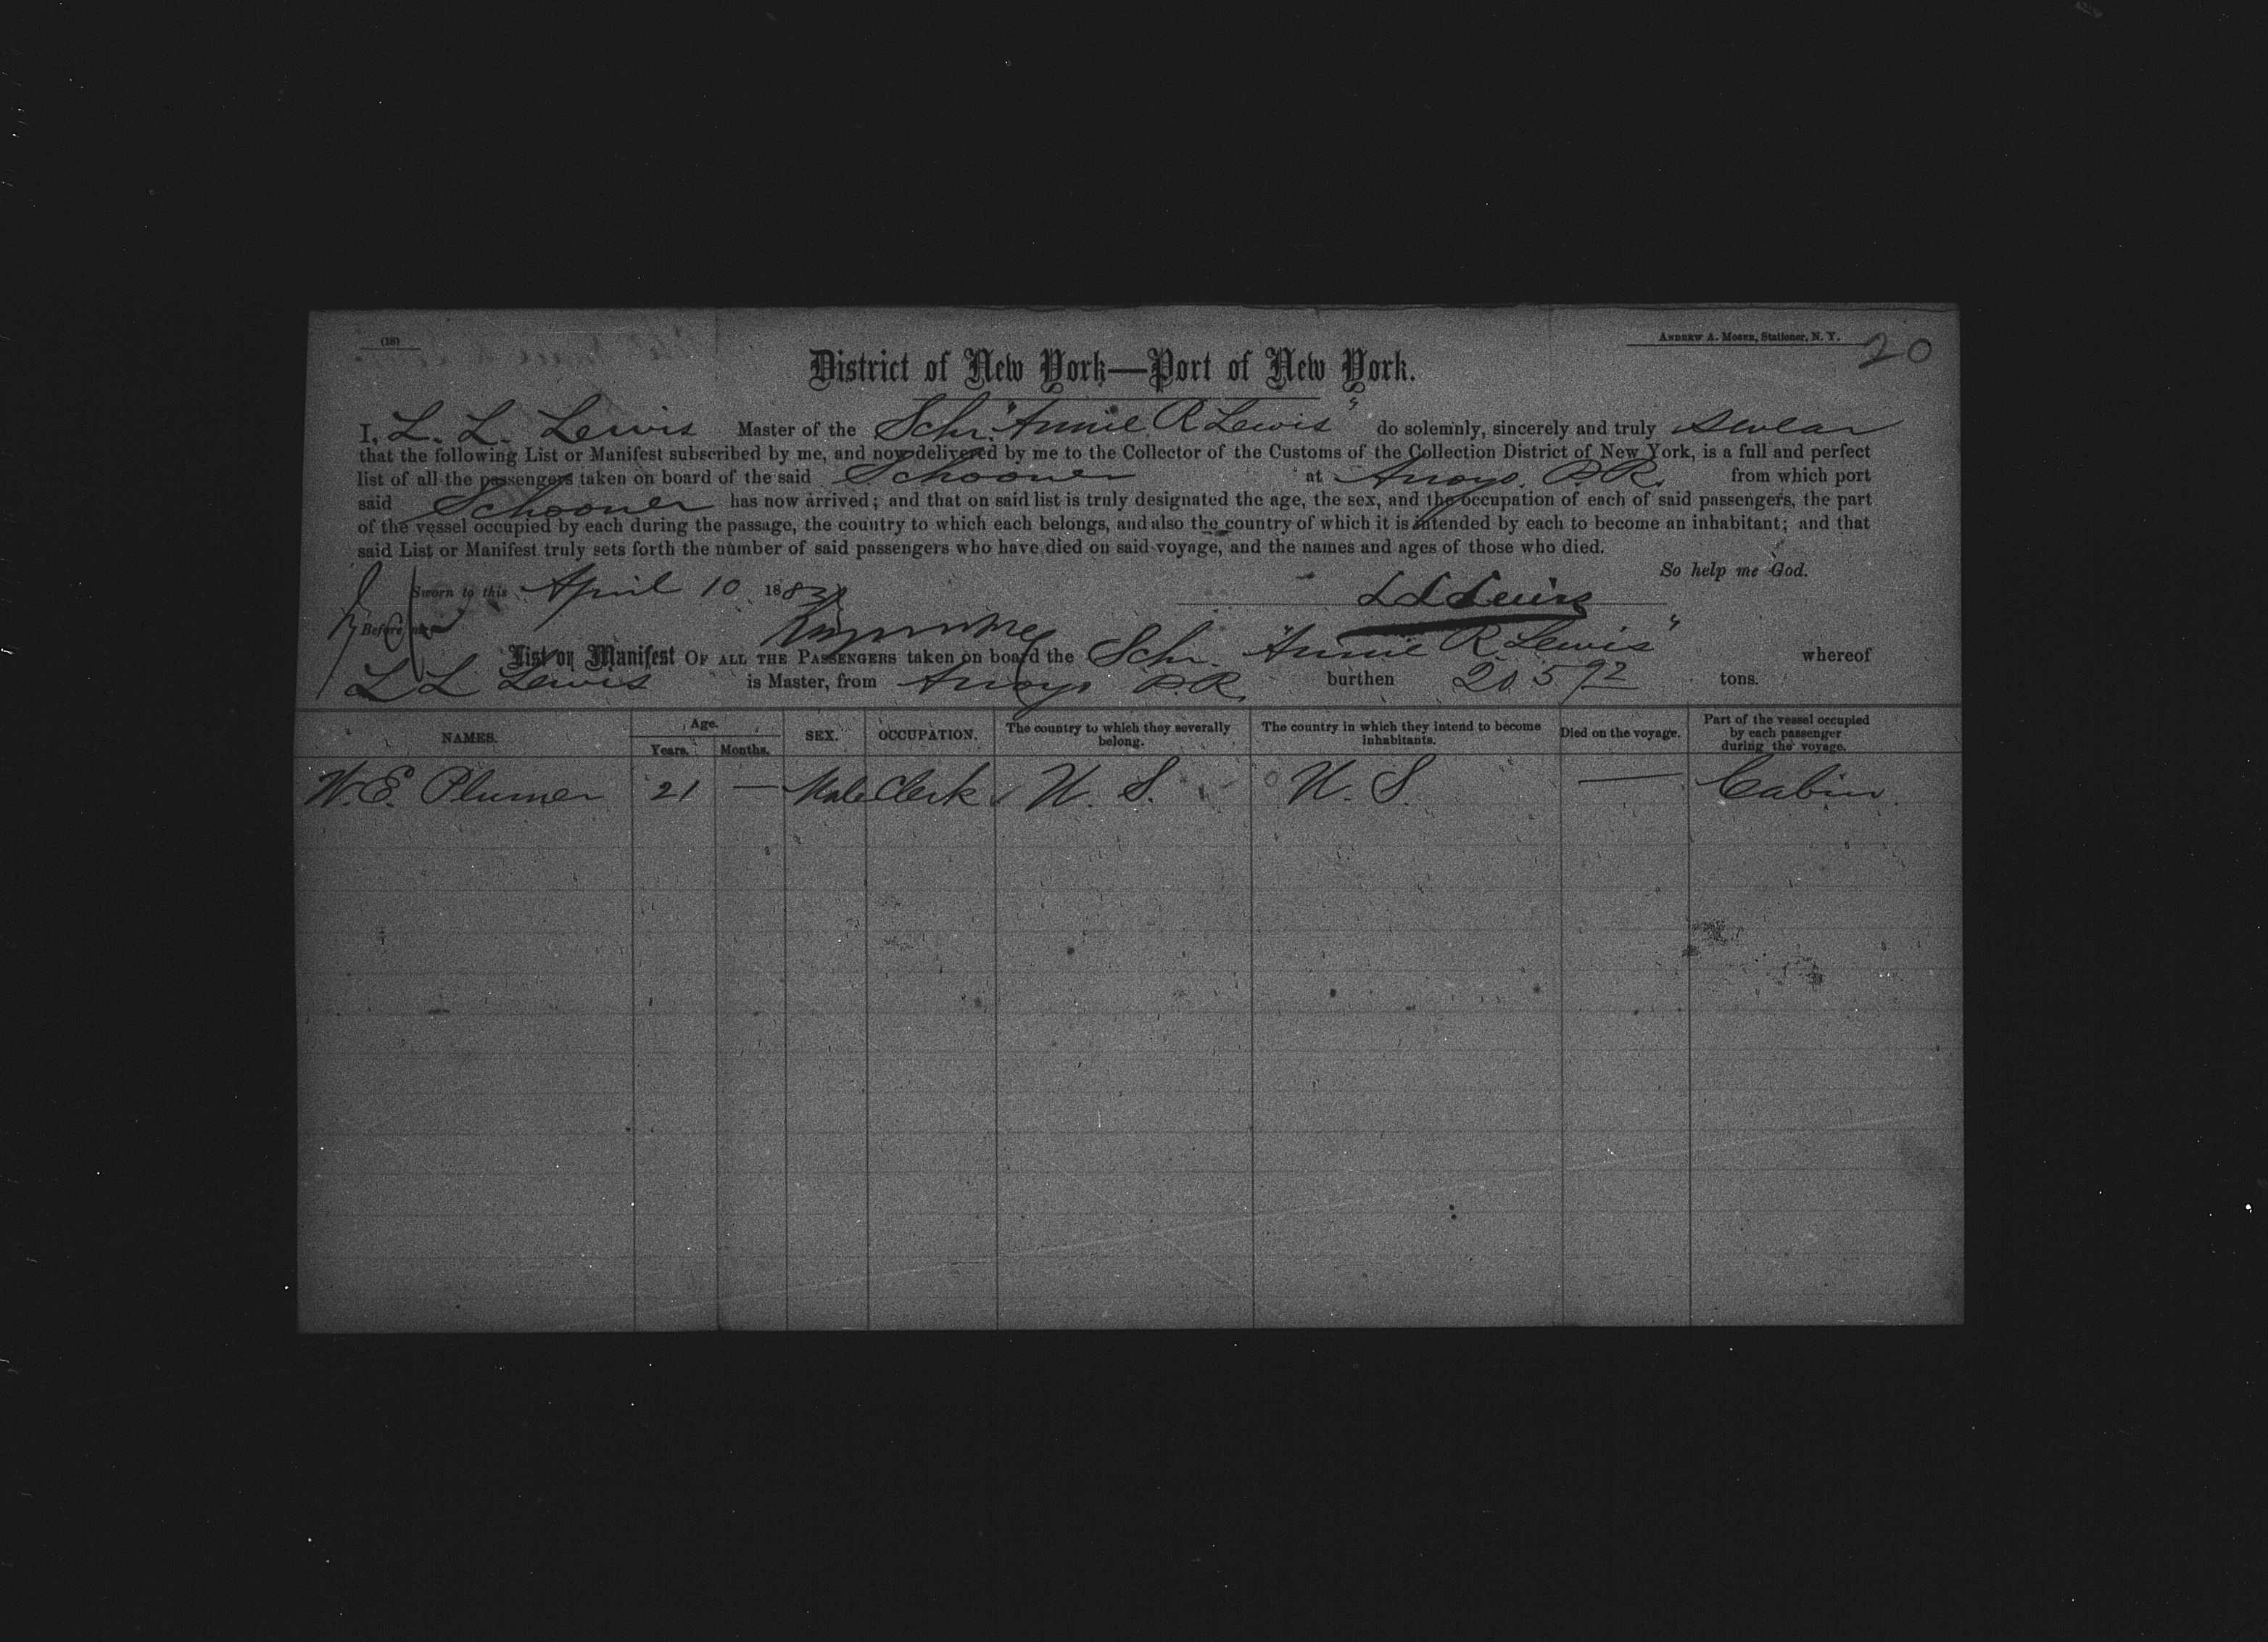 (18)
ANDREW A. MOSER, Stationer, N. Y.
20
District of New York—Port of New York.
I, L. L. Lewis Master of the Schr. "Annie R Lewis" do solemnly, sincerely and truly swear
that the following List or Manifest subscribed by me, and now delivered by me to the Collector of the Customs of the Collection District of New York, is a full and perfect
list of all the passengers taken on board of the said Schooner at Arroyo. P.R. from which port
said Schooner has now arrived; and that on said list is truly designated the age, the sex, and the occupation of each of said passengers, the part
of the vessel occupied by each during the passage, the country to which each belongs, and also the country of which it is intended by each to become an inhabitant; and that
said List or Manifest truly sets forth the number of said passengers who have died on said voyage, and the names and ages of those who died.
So help me God.
Sworn to this April 10 1883
L L Lewis
Before me
List or Manifest OF ALL THE PASSENGERS taken on board the Schr. "Annie R. Lewis" whereof
L L Lewis is Master, from Arroyo P.R. burthen 205 92 tons.
NAMES. Age. Years. Months. SEX. OCCUPATION. The country to which they severally belong. The country in which they intend to become inhabitants. Died on the voyage. Part of the vessel occupied by each passenger during the voyage.
W. E. Plumer 21 — Male Clerk U. S. U. S. — Cabin